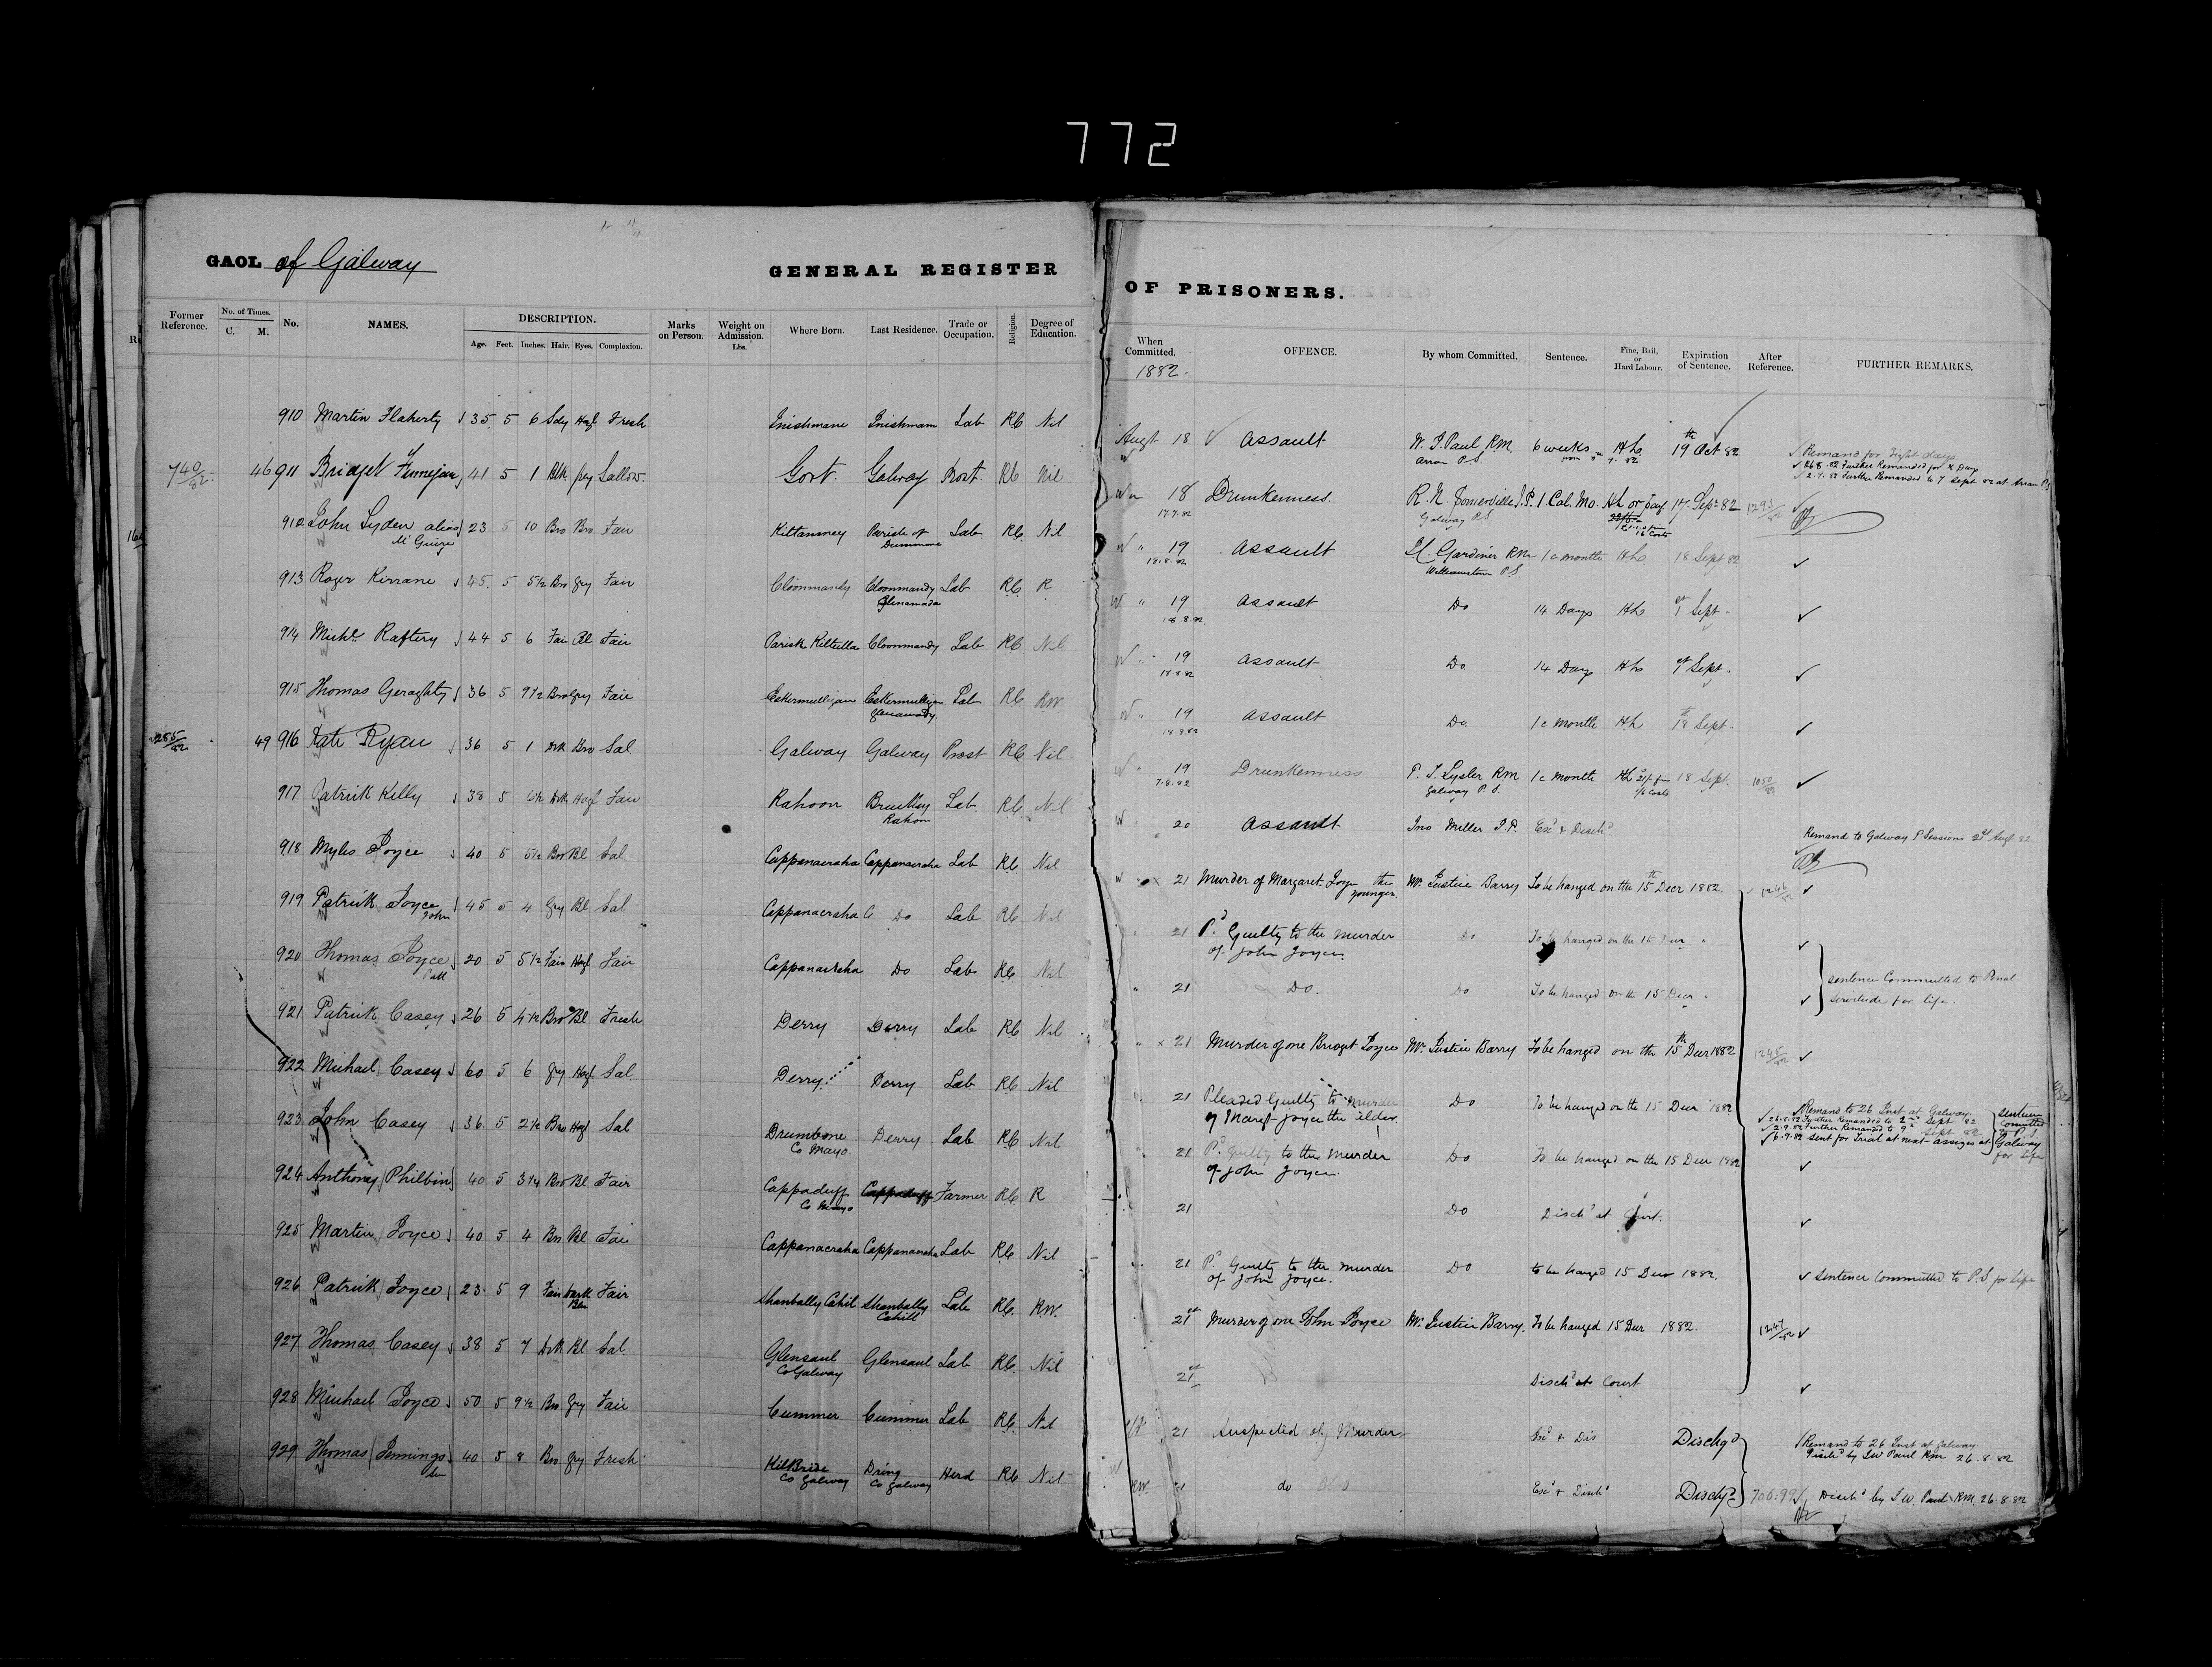 772
GAOL of Galway GENERAL REGISTER OF PRISONERS.
Former Reference. No. of Times. C. M. No. NAMES. DESCRIPTION. Age. Feet. Inches. Hair. Eyes. Complexion. Marks on Person. Weight on Admission. Lbs. Where Born. Last Residence. Trade or Occupation. Religion. Degree of Education.
When Committed. OFFENCE. By whom Committed. Sentence. Fine, Bail, or Hard Labour. Expiration of Sentence. After Reference. FURTHER REMARKS.
1882
910 Martin Flaherty 35 5 6 Sdy Hazl Fresh Inishmane Inishmain Lab RC Nil
740/82 46 911 Bridget Finnegan 41 5 1 Blk Gry Sallow Gort. Galway Prost. RC Nil
912 John Lyden alias 23 5 10 Bro Bro Fair Kiltamney Parish of Lab RC Nil
McGuire Dunmore
913 Roger Kirrane 45 5 5½ Bro Gry Fair Cloonmandy Cloonmandy Lab RC R
Glenamada
914 Michl Raftery 44 5 6 Fair Bl Fair Parish Kiltulla Cloonmandy Lab RC Nil
915 Thomas Geraghty 36 5 9½ Bro Gry Fair Eskermulligan Eskermulligan Lab RC RW
916 Kate Ryan 36 5 1 Drk Bro Sal Galway Galway Prost RC Nil
285/82 49
917 Patrick Kelly 38 5 6½ Drk Hazl Fair Rahoon Lab RC Nil
Rahoon
918 Myles Joyce 40 5 5½ Bro Bl Sal Cappanacraha Cappanacraha Lab RC Nil
919 Patrick Joyce 45 5 4 Gry Bl Sal Cappanacraha Do Lab RC Nil
John
920 Thomas Joyce 20 5 5½ Fair Hazl Fair Cappanacraha Do Lab RC Nil
Patt
921 Patrick Casey 26 5 4½ Bro Bl Fresh Derry Derry Lab RC Nil
922 Michael Casey 60 5 6 Gry Hazl Sal Derry Derry Lab RC Nil
923 John Casey 36 5 2½ Bro Hazl Sal Drumbone Derry Lab RC Nil
Co Mayo
924 Anthony Philbin 40 5 3¼ Bro Bl Fair Cappaduff Cappaduff Farmer RC R
Co Mayo
925 Martin Joyce 40 5 4 Bro Bl Fair Cappanacraha Cappanacraha Lab RC Nil
926 Patrick Joyce 23 5 9 Fair Dark Blue Fair Shanbally Cahil Shanbally Lab RC RW
Cahill
927 Thomas Casey 38 5 7 Drk Bl Sal Glensaul Glensaul Lab RC Nil
Co Galway
928 Michael Joyce 50 5 9½ Bro Gry Fair Cummer Cummer Lab RC Nil
929 Thomas Jennings 40 5 8 Bro Gry Fresh KilBride Dring Herd RC Nil
Sr Co Galway Co Galway
Augt 18 Assault W. J. Paul RM 6 weeks HL 19th Oct 82 Remand for Eight days
Arran P.S. 26.8.82 Further Remanded for 8 Days
2.9.82 Further Remanded to 7 Sept 82 at Arran PS
18 Drunkenness R. N. Somerville J.P. 1 Cal. Mo. HL or pay 17 Sept 82 1293/82
17.7.82 Galway P.S.
19 Assault H. Gardiner RM 1 c month HL 18 Sept 82
18.8.82 Williamstown P.S.
19 Assault Do 14 Days HL 1st Sept
18.8.82
19 Assault Do 14 Days HL 1st Sept
18.8.82
19 Assault Do 1 c month HL 18th Sept
18.8.82
19 Drunkenness P. J. Lyster RM 1 c month HL 18 Sept
7.8.82 Galway P.S.
20 Assault Jno Miller J.P. Exd & Dischd Remand to Galway P Sessions 21 Augt 82
21 Murder of Margaret Joyce the younger Mr Justice Barry To be hanged on the 15th Decr 1882 1246/82
21 Pd Guilty to the murder Do To be hanged on the 15 Decr
of John Joyce
21 Do. Do To be hanged on the 15 Decr
sentence Committed to Penal
servitude for life.
21 Murder of one Bridget Joyce Mr Justice Barry To be hanged on the 15th Decr 1882 1245/82
21 Pleaded Guilty to murder Do To be hanged on the 15 Decr 1882 Remand to 26 Inst at Galway.
of Margt Joyce the Elder. Further Remanded to 2nd Sept 82
2.9.82 Further Remanded to 9th Sept 82
6.9.82 Sent for Trial at next assizes at Galway
sentence Committed to P.S. for Life
21 Pd guilty to the murder Do To be hanged on the 15 Decr 1882
of John Joyce.
21 Do Dischd at Court.
21 Pd Guilty to the murder Do to be hanged 15 Decr 1882. sentence Committed to P.S for Life
of John Joyce.
21st Murder of one John Joyce Mr Justice Barry. To be hanged 15 Decr 1882. 1247/82
21st Dischd at Court
21 Suspected of Murder Exd & Dis Dischgd Remand to 26 Inst at Galway.
Paul RM 26.8.82
21 do Exd & Dischd Dischgd Dischd by J W. Paul RM. 26.8.82